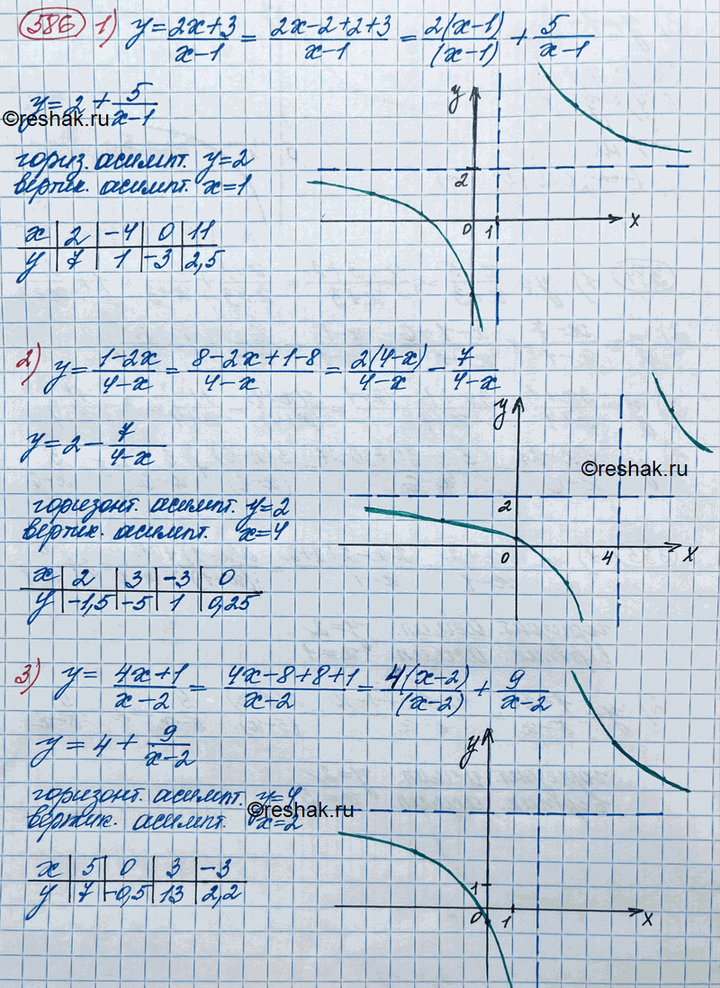 586 1) y = 2x+3/x-1 = 2x-2+2+3/x-1 = 2(x-1)/(x-1) + 5/x-1
y = 2 + 5/x-1
©reshak.ru
гориз. асимпт. y=2
вертик. асимпт. x=1
x | 2 | -4 | 0 | 11
y | 7 | 1 | -3 | 2,5
y
2
0 1 x
2) y = 1-2x/4-x = 8-2x+1-8/4-x = 2(4-x)/4-x - 7/4-x
y = 2 - 7/4-x
горизонт. асимпт. y=2
вертик. асимпт. x=4
x | 2 | 3 | -3 | 0
y | -1,5 | -5 | 1 | 0,25
y
©reshak.ru
2
0 4 x
3) y = 4x+1/x-2 = 4x-8+8+1/x-2 = 4(x-2)/(x-2) + 9/x-2
y = 4 + 9/x-2
горизонт. асимпт. y=4
вертик. асимпт. x=2
©reshak.ru
x | 5 | 0 | 3 | -3
y | 7 | -0,5 | 13 | 2,2
y
1
0 1 x